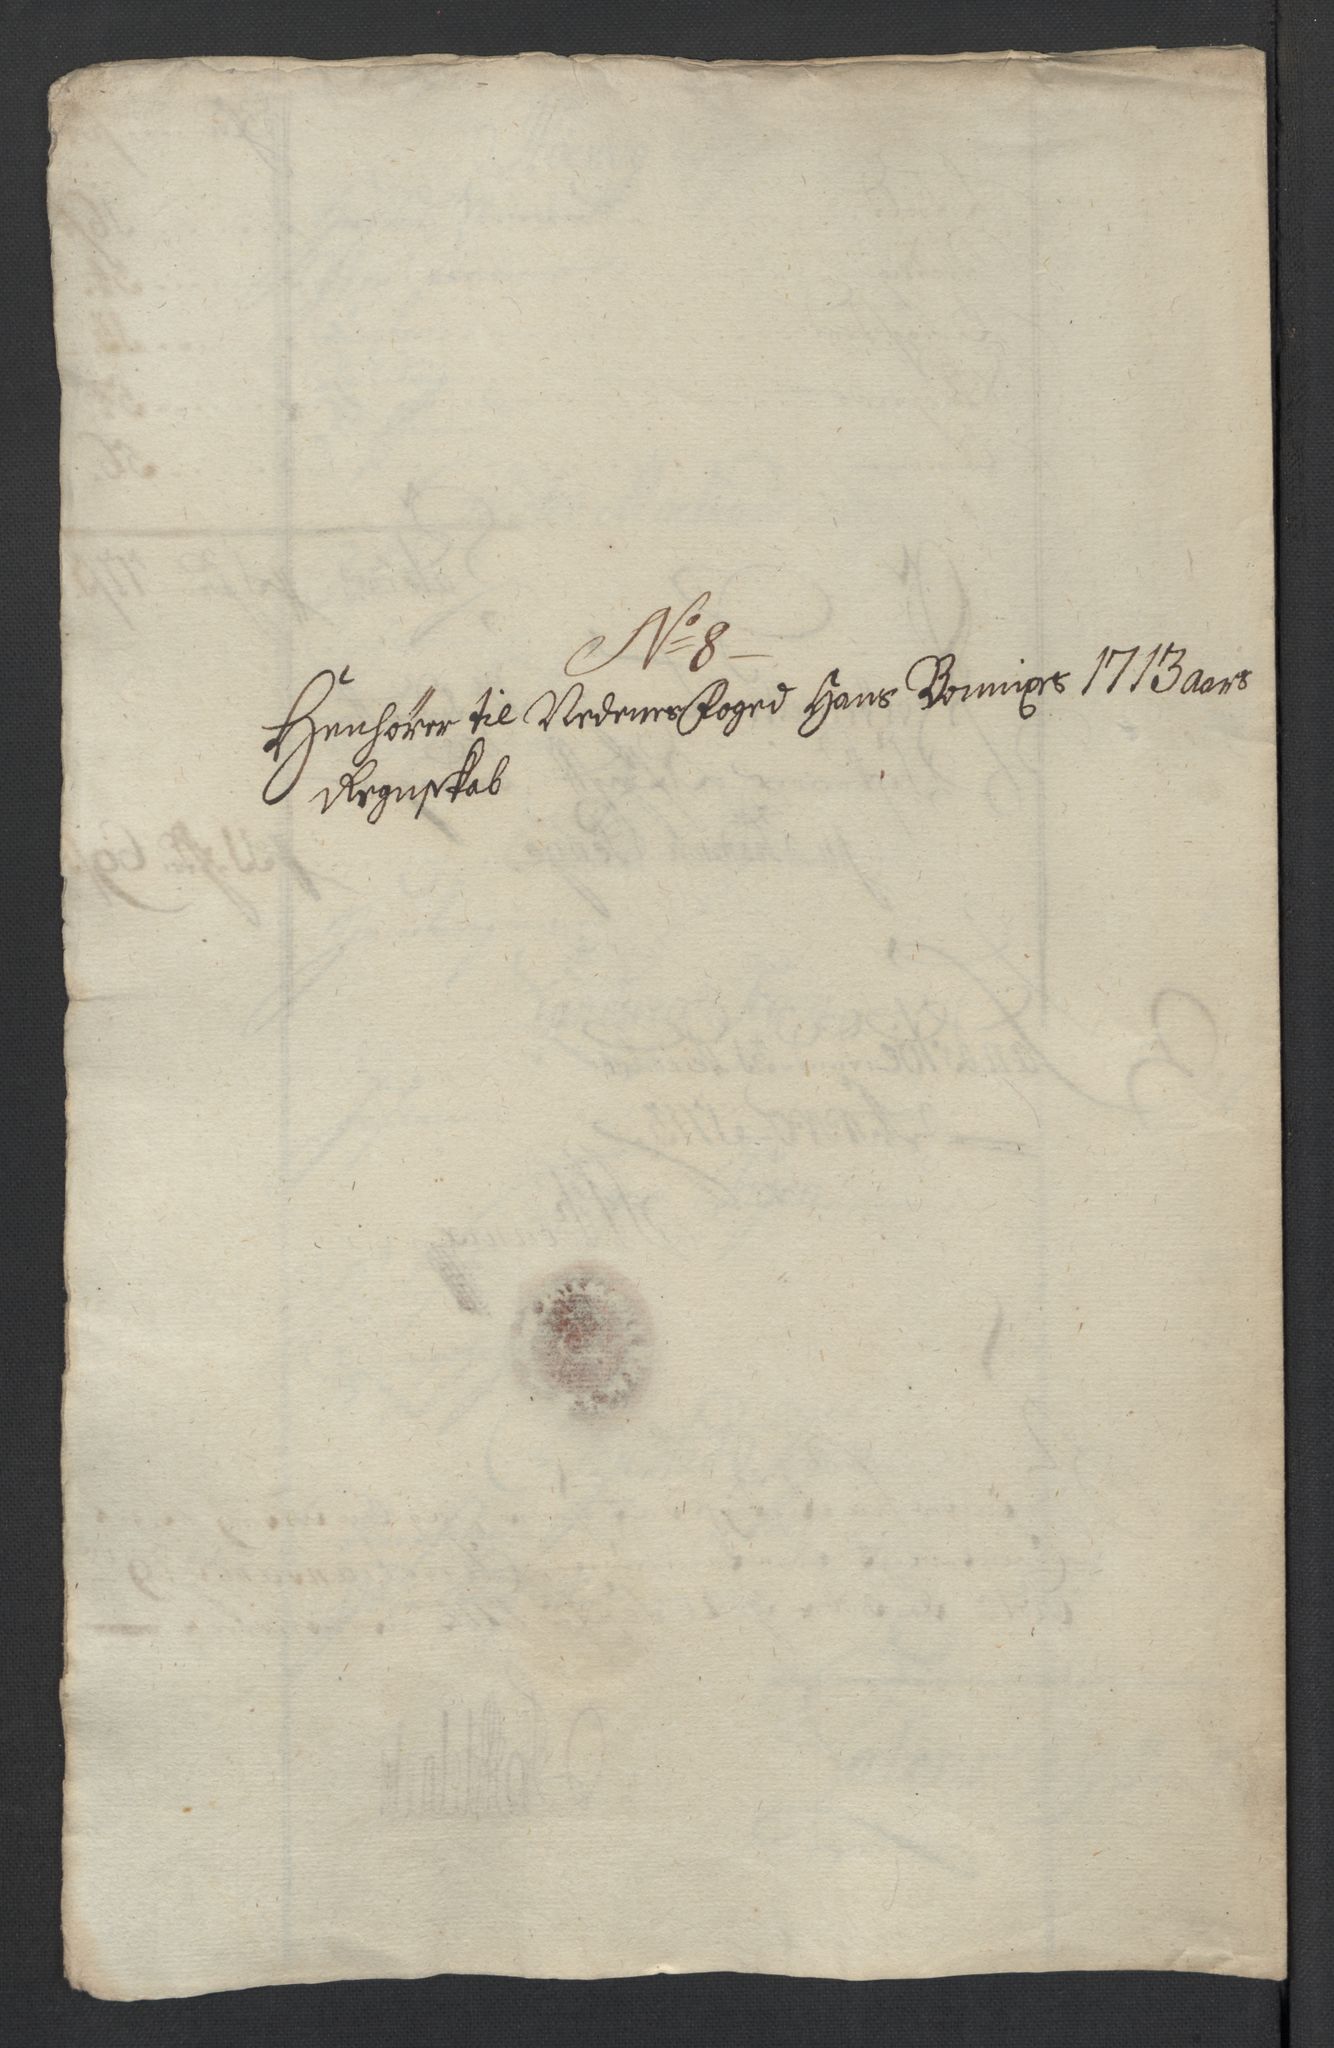 No 8
Henhører til Nedenes Foged Hans Bonnixes 1713 aars
Regnskab